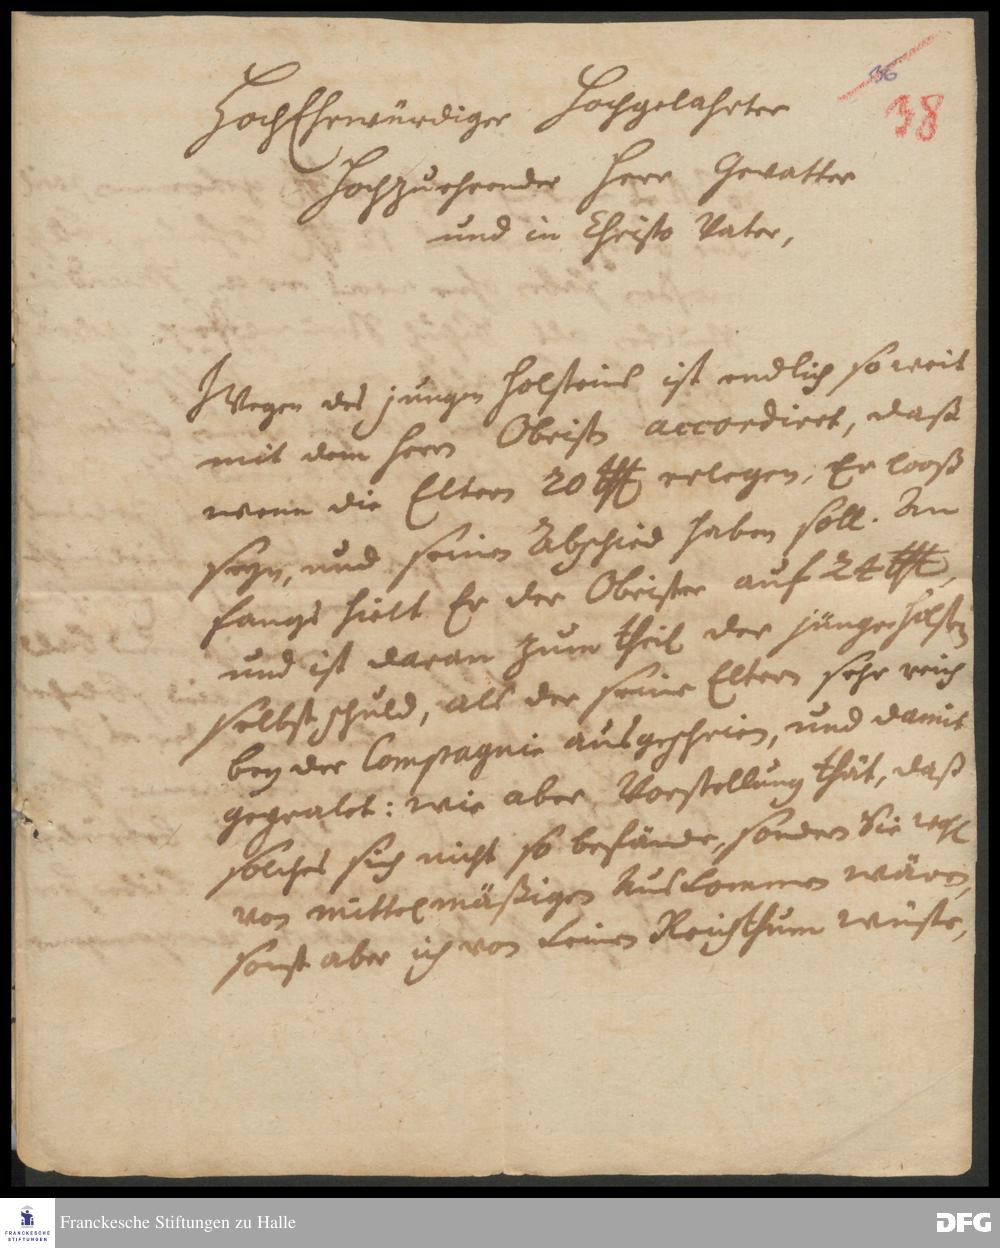 36
38
HochEhrwürdiger Hochgelahrter
Hochzuehrender Herr Gevatter
und in Christo Vater,
Wegen des jungen Holsteins ist endlich so weit
mit dem Herrn Obrist accordiret, daß
wenn die Eltern 20 rthl erlegen, Er looß
seyn, und seinen Abschied haben soll. An
fangs hielt Er der Obrister auf 24 rthl,
und ist daran zum theil der jünger Holstein
selbst schuld, als der seine Eltern sehr reich
bey der Compagnie ausgeschrien, und damit
gepralet: wie aber Vorstellung thät, daß
solches sich nicht so befände, sondern Sie
von mittelmäßigen Auskommen wären,
sonst aber ich von keinen Reichthum wüste,
FRANCKESCHE
STIFTUNGEN
Franckesche Stiftungen zu Halle
DFG